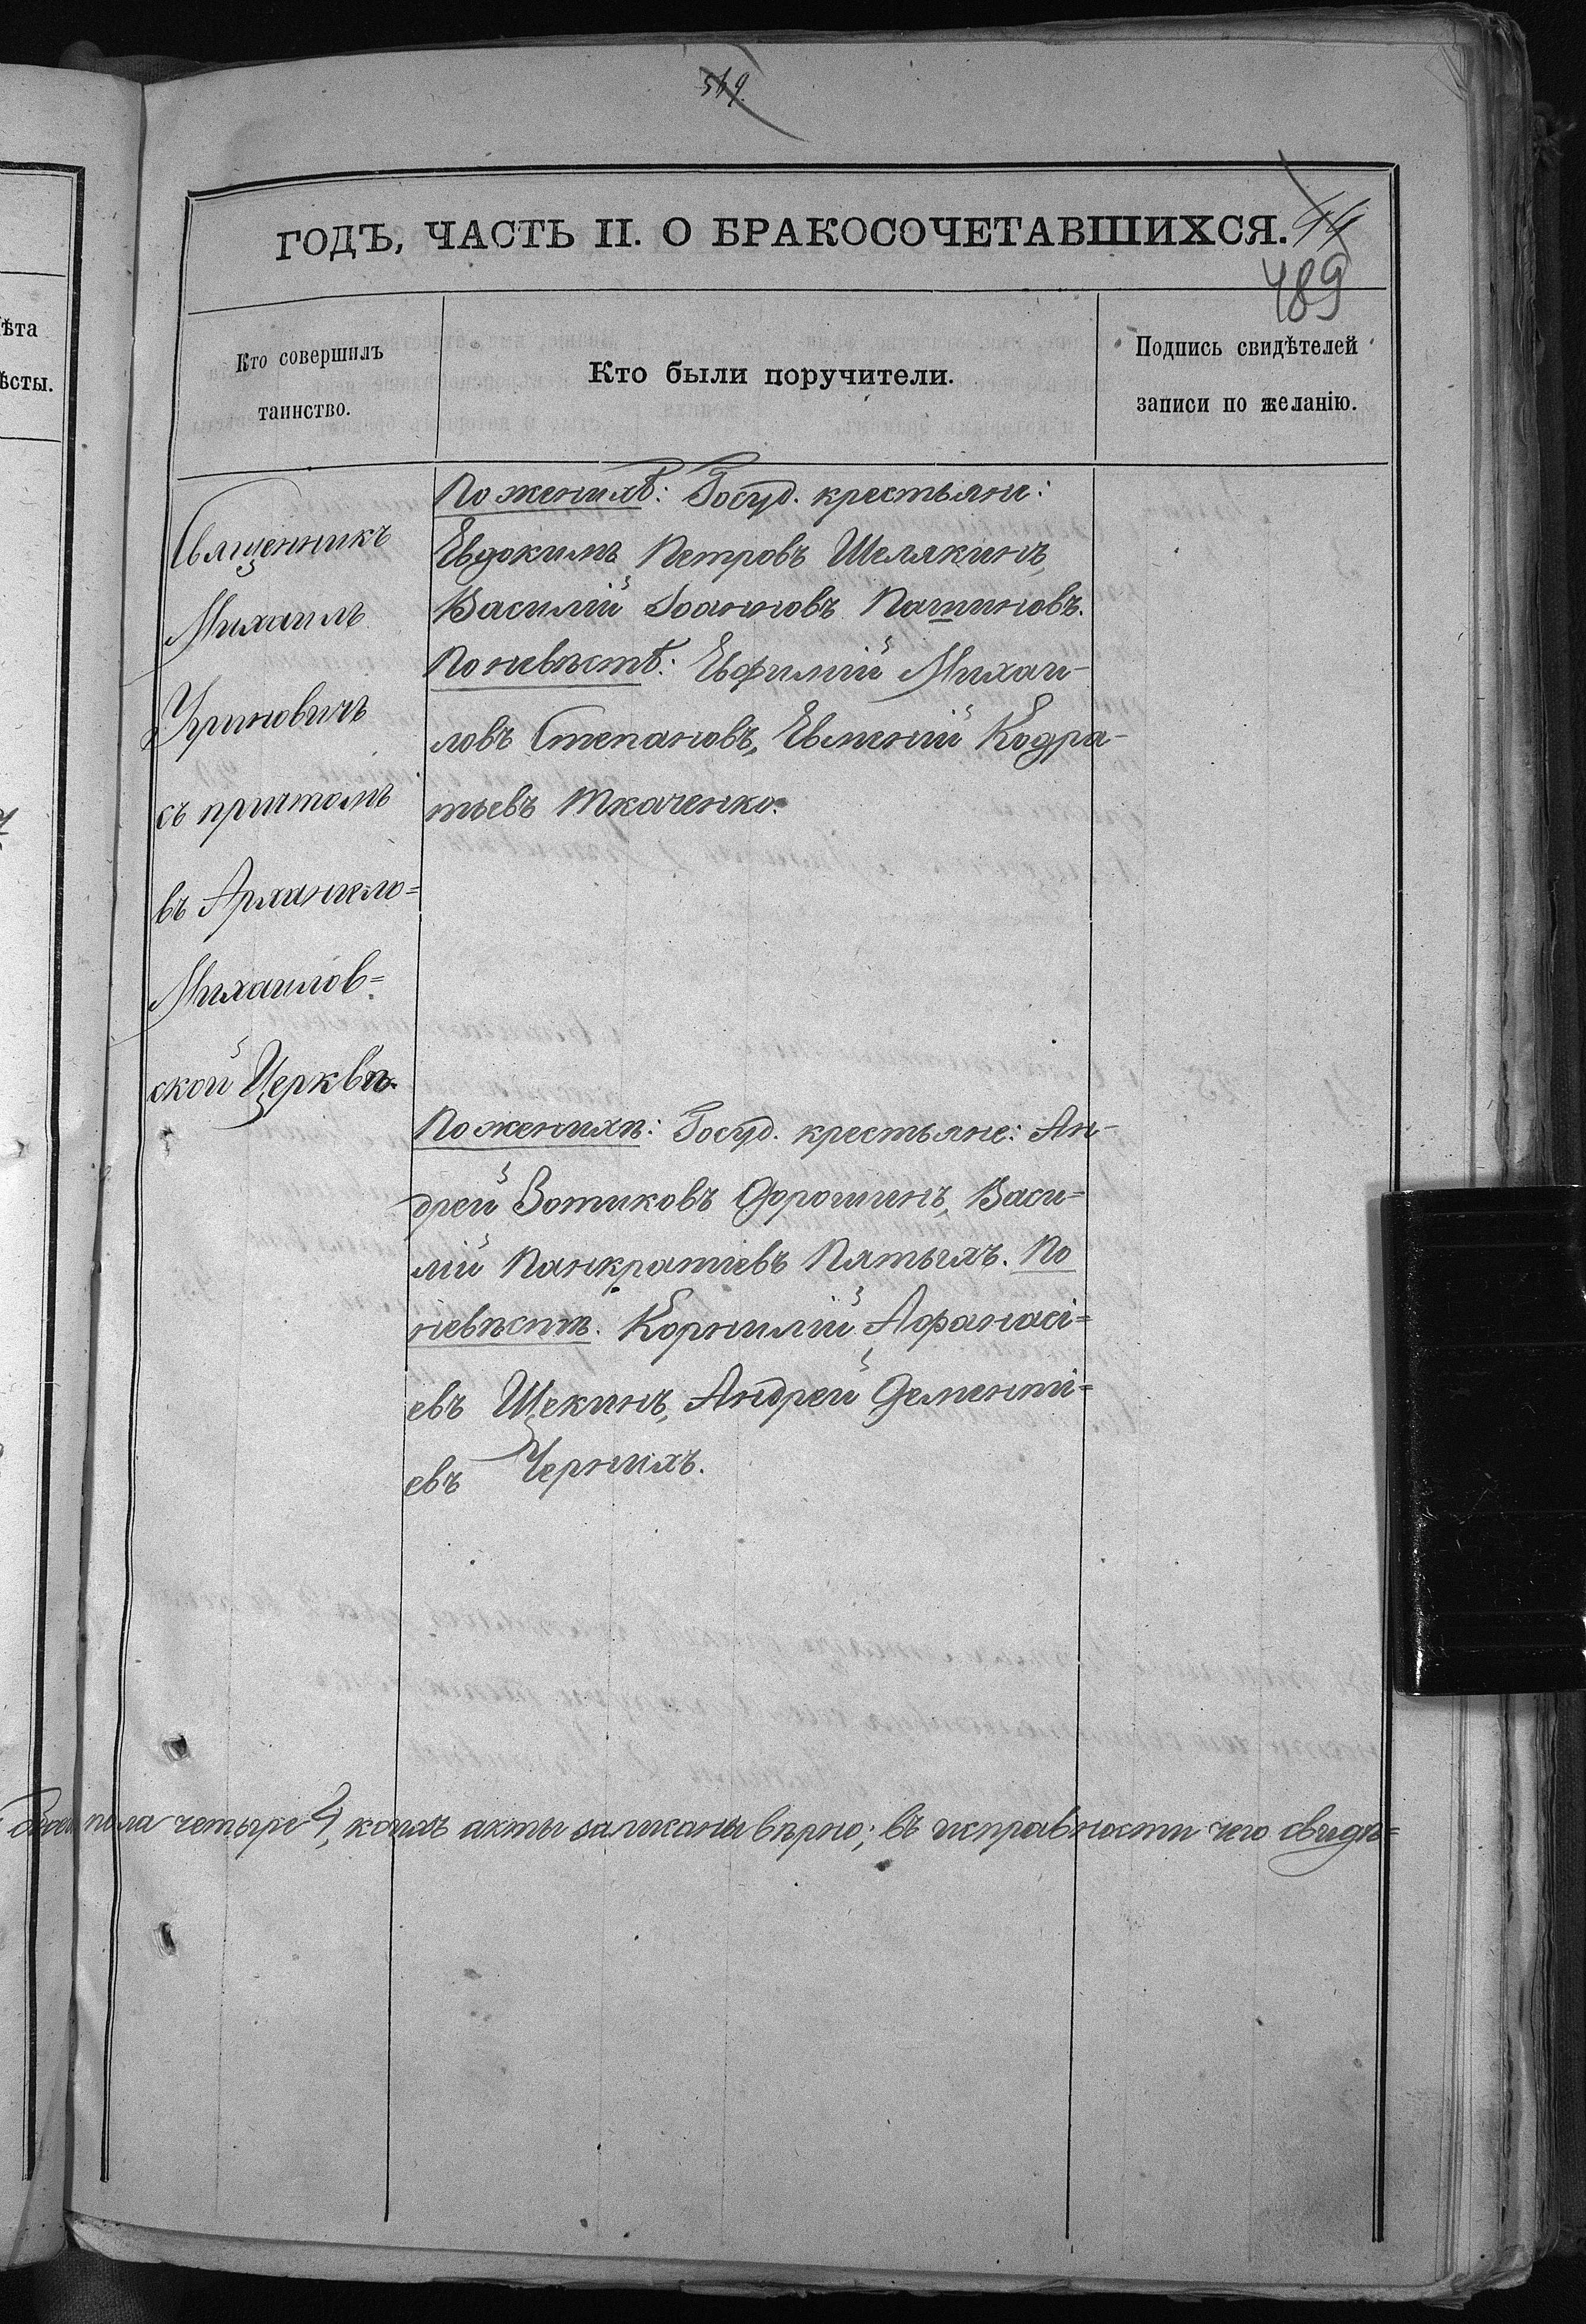 549
ГОДЪ, ЧАСТЬ II. О БРАКОСОЧЕТАВШИХСЯ.
489
ѣта
ѣсты.
Кто совершилъ
таинство.
Кто были поручители.
Подпись свидѣтелей
записи по желанію.
Священникъ
Михаилъ
Угриновичъ
съ причтомъ
въ Архангело=
Михаилов=
ской Церкви.
По женихѣ: Госуд. крестьяне:
Евдокимъ Петровъ Шелякинъ,
Василій Іоанновъ Пашиновъ.
По невѣстѣ: Евфимій Михаи-
ловъ Степановъ, Евменій Кодра-
тьевъ Ткаченко.
По женихѣ: Госуд. крестьяне: Ан-
дрей Зотиковъ Дорошинъ, Васи=
лій Панкратіевъ Пятыхъ. По
невѣстѣ. Корнилій Афанасі=
евъ Щекинъ, Андрей Дементі=
евъ Черныхъ.
пола четыре 4, коихъ акты записаны вѣрно; въ исправности чего свидѣ=